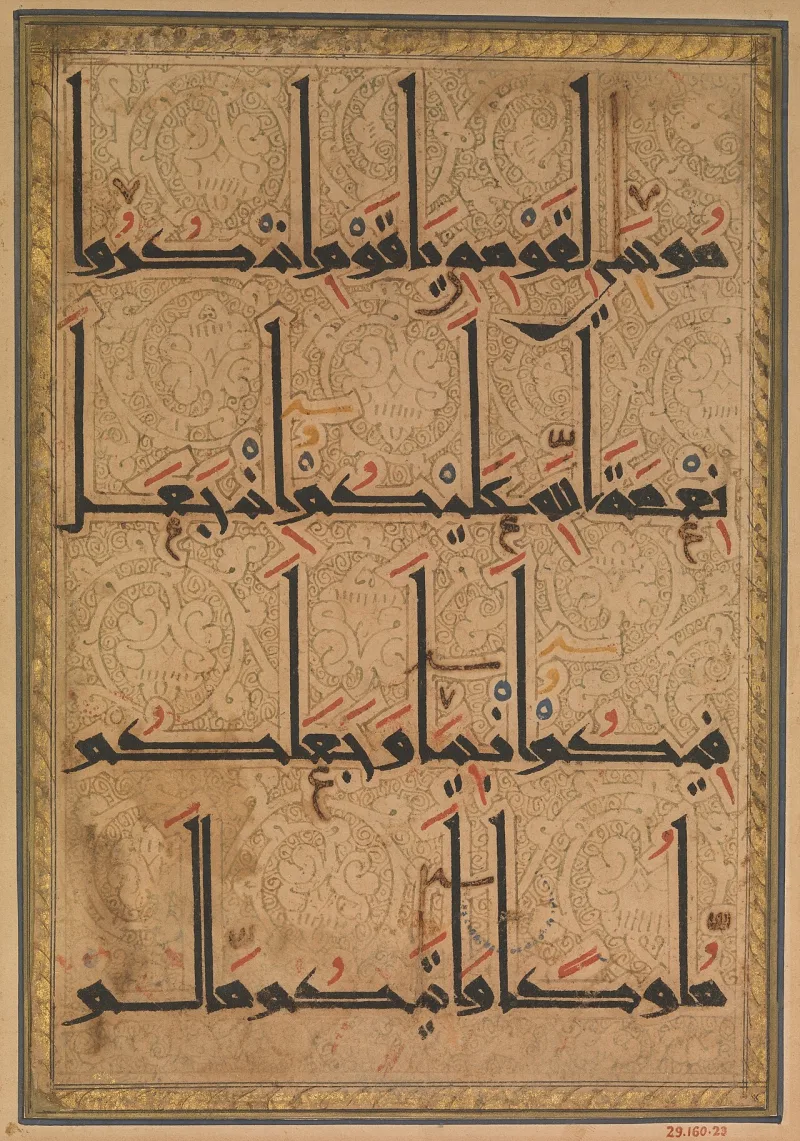 مُوسَىٰ لِقَوْمِهِ يَاقَوْمِ اذْكُرُوا
نِعْمَةَ اللَّهِ عَلَيْكُمْ اِذْ جَعَلَ
فِيكُمْ اَنْبِيَآءَ وَجَعَلَكُم
مُلُوكًا وَاَتَيكُم مَّا لَم
29.160.23